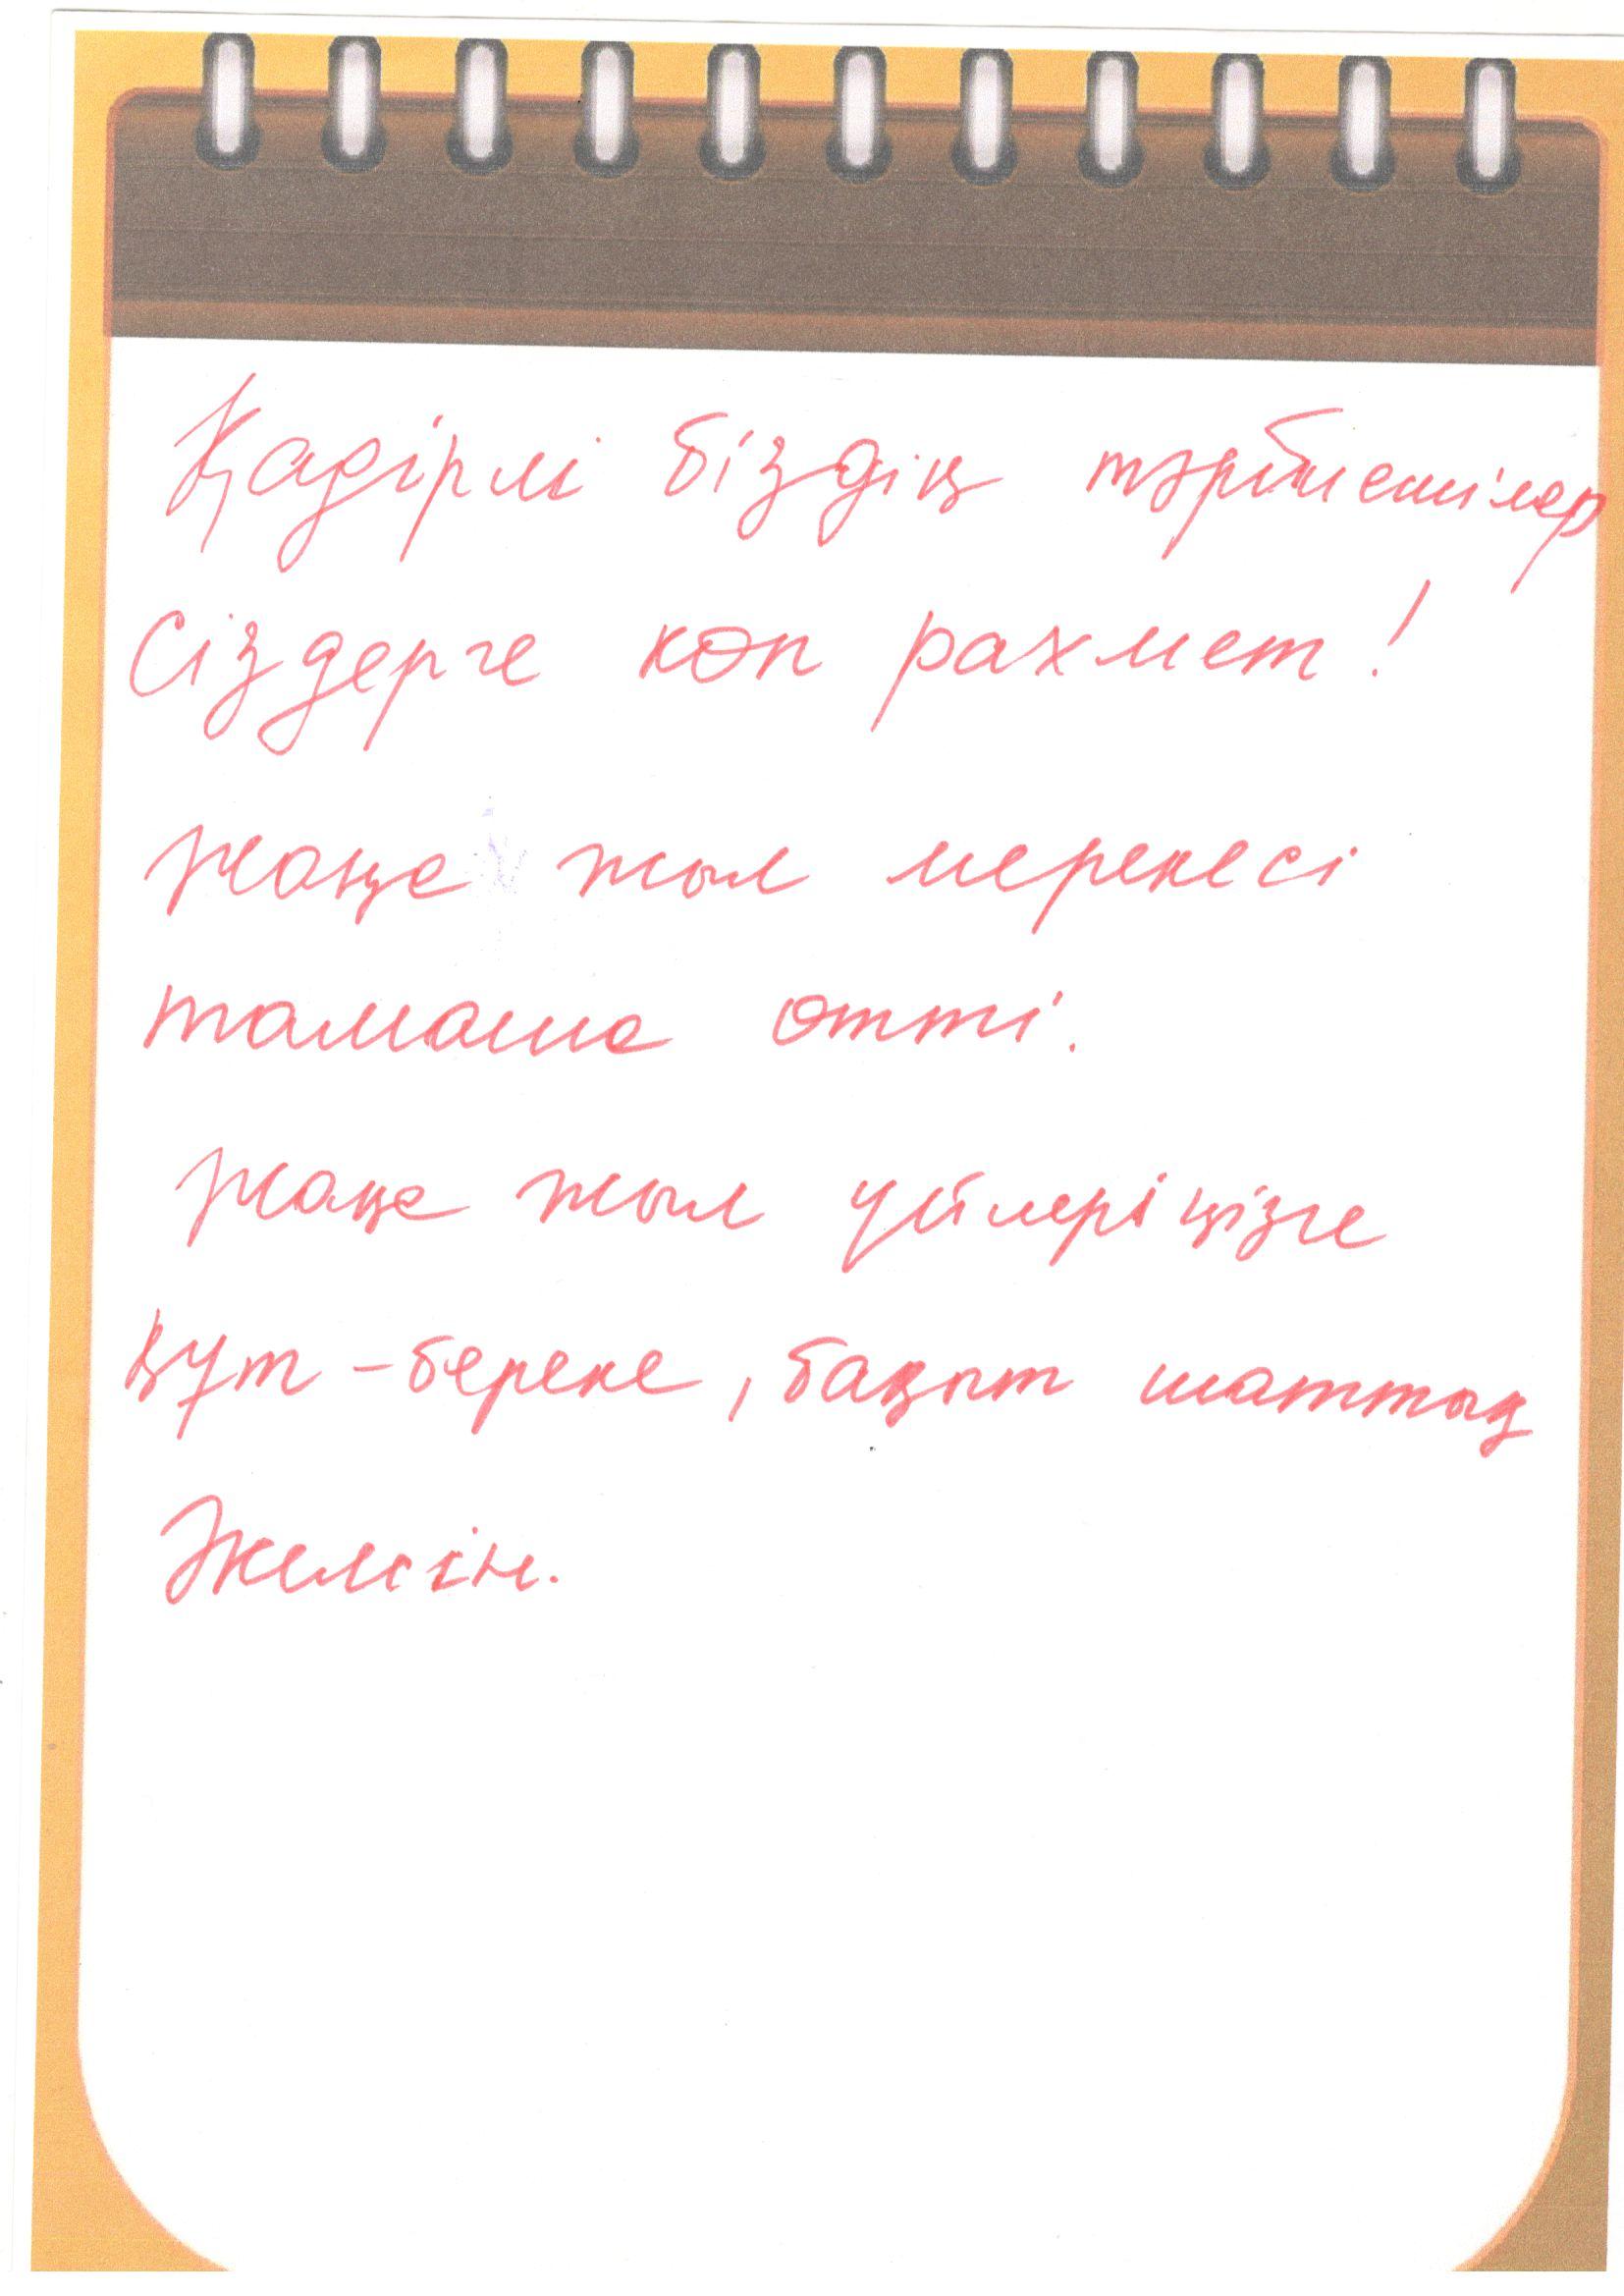 Қадірлі біздің тәрбиешілер
Сіздерге көп рахмет!
Жаңа жыл мерекесі
тамаша өтті.
Жаңа жыл үйлеріңізге
құт-береке, бақыт шаттық
Әкелсін.